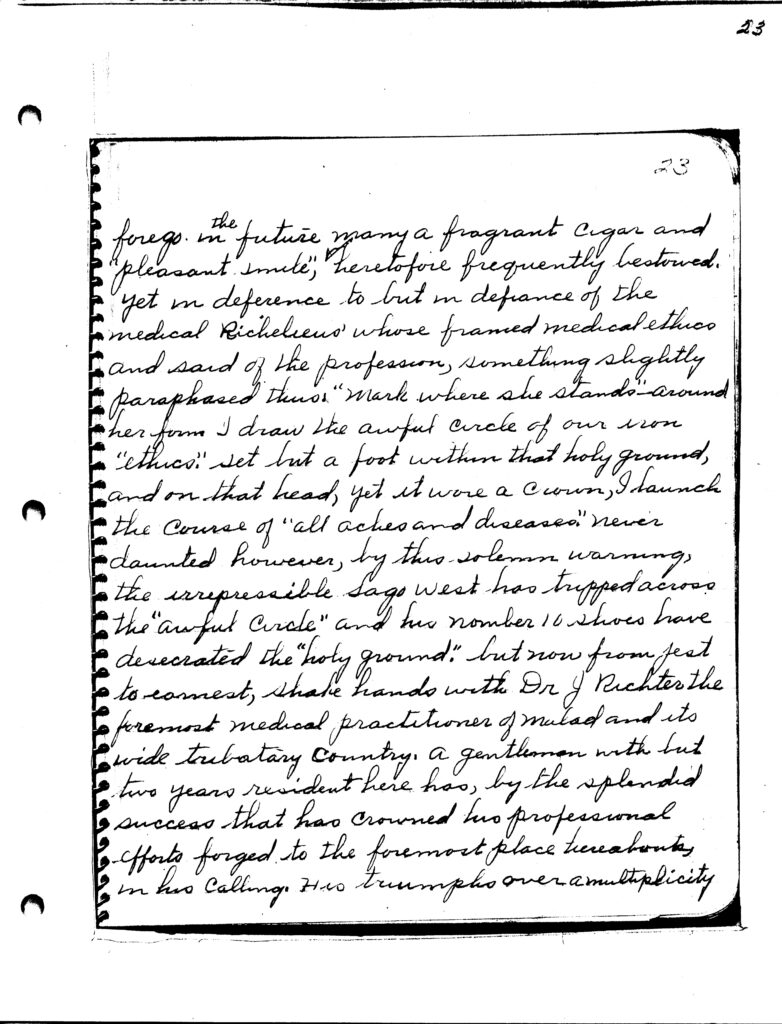 23
23
forego. in the future many a fragrant Cigar and
"pleasant smile", heretofore frequently bestowed.
yet in deference to but in defiance of the
medical Richelieus' whose framed medical ethics
and said of the profession, something slightly
paraphased thus. "Mark where she stands" - around
her form I draw the awful circle of our iron
"ethics." set but a foot within that holy ground,
and on that head, yet it wore a Crown, I launch
the Course of "all aches and diseases." never
daunted however, by this solemn warning,
the irrepressible Sago West has tripped across
the "awful Circle" and his nomber 10 shoes have
desecrated the "holy ground." but now from jest
to earnest, shake hands with Dr J Richter the
foremost medical practitioner of Malad and its
wide tributary Country. A gentleman with but
two years resident here has, by the splendid
success that has Crowned his professional
efforts forged to the foremost place hereabouts,
in his Calling. His triumphs over a multiplicity